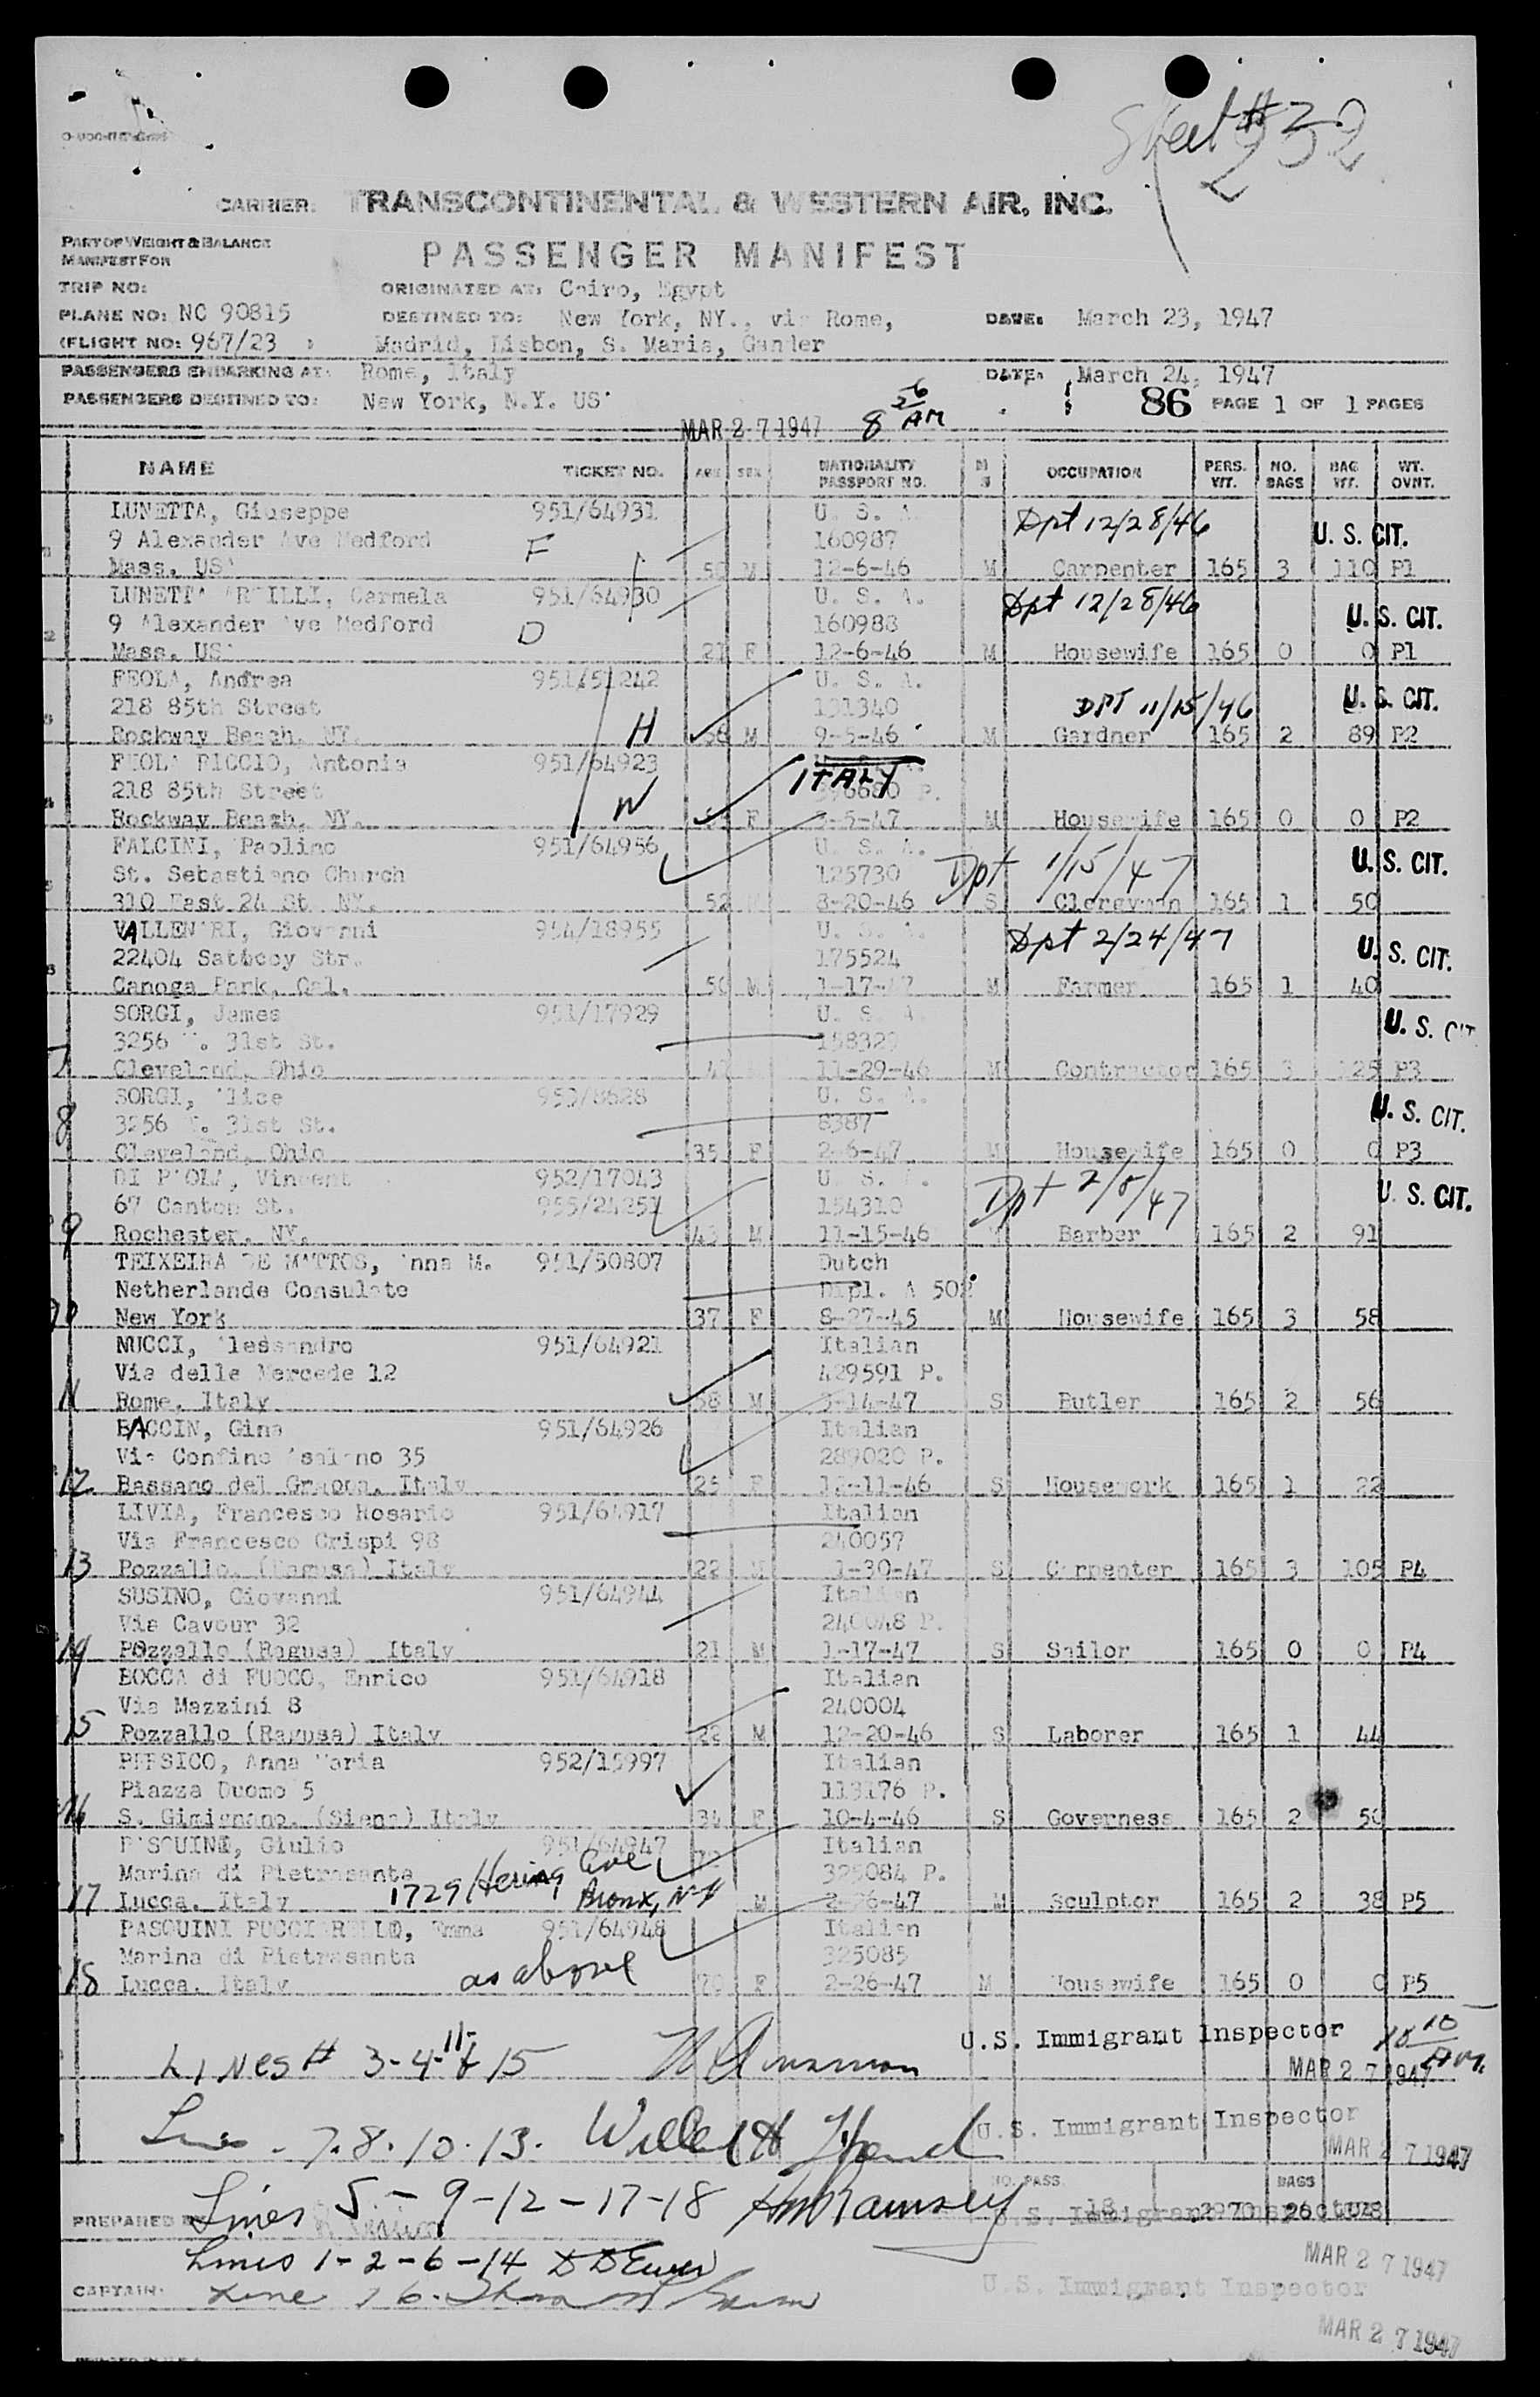 Sheet #
CARRIER: TRANSCONTINENTAL & WESTERN AIR, INC.
PART OF WEIGHT & BALANCE
MANIFEST FOR
PASSENGER MANIFEST
TRIP NO:
ORIGINATED AT: Cairo, Egypt
PLANE NO: NC 90815
DESTINED TO: New York, NY., via Rome,
DATE: March 23, 1947
(FLIGHT NO: 967/23 )
Madrid, Lisbon, S. Maria, Gander
PASSENGERS EMBARKING AT: Rome, Italy
DATE: March 24, 1947
PASSENGERS DESTINED TO: New York, N.Y. US
86 PAGE 1 OF 1 PAGES
MAR 27 1947 8 56 AM
NAME TICKET NO. AGE SEX NATIONALITY PASSPORT NO. M S OCCUPATION PERS. WT. NO. BAGS BAG WT. WT. OVNT.
LUNETTA, Giuseppe 951/64931 U. S. A. Dpt 12/28/46
9 Alexander Ave Medford F 160987 U. S. CIT.
Mass. US 50 M 12-6-46 M Carpenter 165 3 110 P1
LUNETTA, Carmela 951/64930 U. S. A. Dpt 12/28/46
9 Alexander Ave Medford D 160988 U. S. CIT.
Mass. US 21 F 12-6-46 M Housewife 165 0 0 P1
FEOLA, Andrea 951/51242 U. S. A.
218 85th Street 131340 DPT 11/15/46 U. S. CIT.
Rockway Beach, NY. H M 9-5-46 M Gardner 165 2 89 P2
FEOLA RICCIO, Antonia 951/64923 ITALY
218 85th Street W P.
Rockway Beach, NY. F M Housewife 165 0 0 P2
FALCINI, Paolino 951/64956 U. S. A.
St. Sebastiano Church 125730 Dpt 1/15/47 U. S. CIT.
310 East 24 St NY. 52 8-20-46 S Clergyman 165 1 50
VALLENARI, Giovanni 954/18955 U. S. A. Dpt 2/24/47
22404 Saticoy Str. 175524 U. S. CIT.
Canoga Park, Cal. 50 M 1-17-47 M Farmer 165 1 40
SORGI, James 951/17929 U. S. A. U. S. CIT
3256 W. 31st St. 158329
7 Cleveland, Ohio 11-29-46 M Contractor 165 3 125 P3
SORGI, Alice 953/8628 U. S. A.
3256 W. 31st St. 8387 U. S. CIT.
8 Cleveland, Ohio 35 F 2-6-47 M Housewife 165 0 0 P3
DI PAOLA, Vincent 952/17043 U. S. A.
67 Canton St. 955/24251 154310 Dpt 2/8/47 U. S. CIT.
9 Rochester, NY. 43 M 11-15-46 Barber 165 2 91
TEIXEIRA DE MATTOS, Anna M. 951/50807 Dutch
Netherlands Consulate Dipl. A 502
10 New York 37 F 8-27-45 M Housewife 165 3 58
NUCCI, Alessandro 951/64921 Italian
Via delle Mercede 12 429591 P.
11 Rome, Italy 38 M 3-14-47 S Butler 165 2 56
BACCIN, Gina 951/64926 Italian
Via Confine Asolano 35 289020 P.
12 Bassano del Grappa, Italy 25 F 12-11-46 S Housework 165 1 22
LIVIA, Francesco Rosario 951/64917 Italian
Via Francesco Crispi 98 240057
13 Pozzallo, (Ragusa) Italy 22 M 1-30-47 S Carpenter 165 3 105 P4
SUSINO, Giovanni 951/64944 Italian
Via Cavour 32 240048 P.
14 Pozzallo (Ragusa) Italy 21 M 1-17-47 S Sailor 165 0 0 P4
BOCCA di FUOCO, Enrico 951/64918 Italian
Via Mazzini 8 240004
15 Pozzallo (Ragusa) Italy 22 M 12-20-46 S Laborer 165 1 44
PERSICO, Anna Maria 952/15997 Italian
Piazza Duomo 5 113176 P.
16 S. Gimignano, (Siena) Italy 34 F 10-4-46 S Governess 165 2 50
PASQUINI, Giulio 951/64947 Italian
Marina di Pietrasanta 325084 P.
17 Lucca, Italy 1729 Hering Ave Bronx, N-Y M 2-26-47 M Sculptor 165 2 38 P5
PASQUINI PUCCIARELLO, Emma 951/64948 Italian
Marina di Pietrasanta 325085
18 Lucca, Italy as above 70 F 2-26-47 M Housewife 165 0 0 P5
U.S. Immigrant Inspector 10 10 AM.
LINES # 3-4-11-& 15 MAR 27 1947
Lines - 7. 8. 10. 13. U.S. Immigrant Inspector
MAR 27 1947
NO. PASS. BAGS
Lines 5 - 9 - 12 - 17 - 18 HM Ramsey 18 2970 26
PREPARED BY U.S. Immigrant Inspector
MAR 27 1947
Lines 1 - 2 - 6 - 14
CAPTAIN: Line 16. U.S. Immigrant Inspector
MAR 27 1947